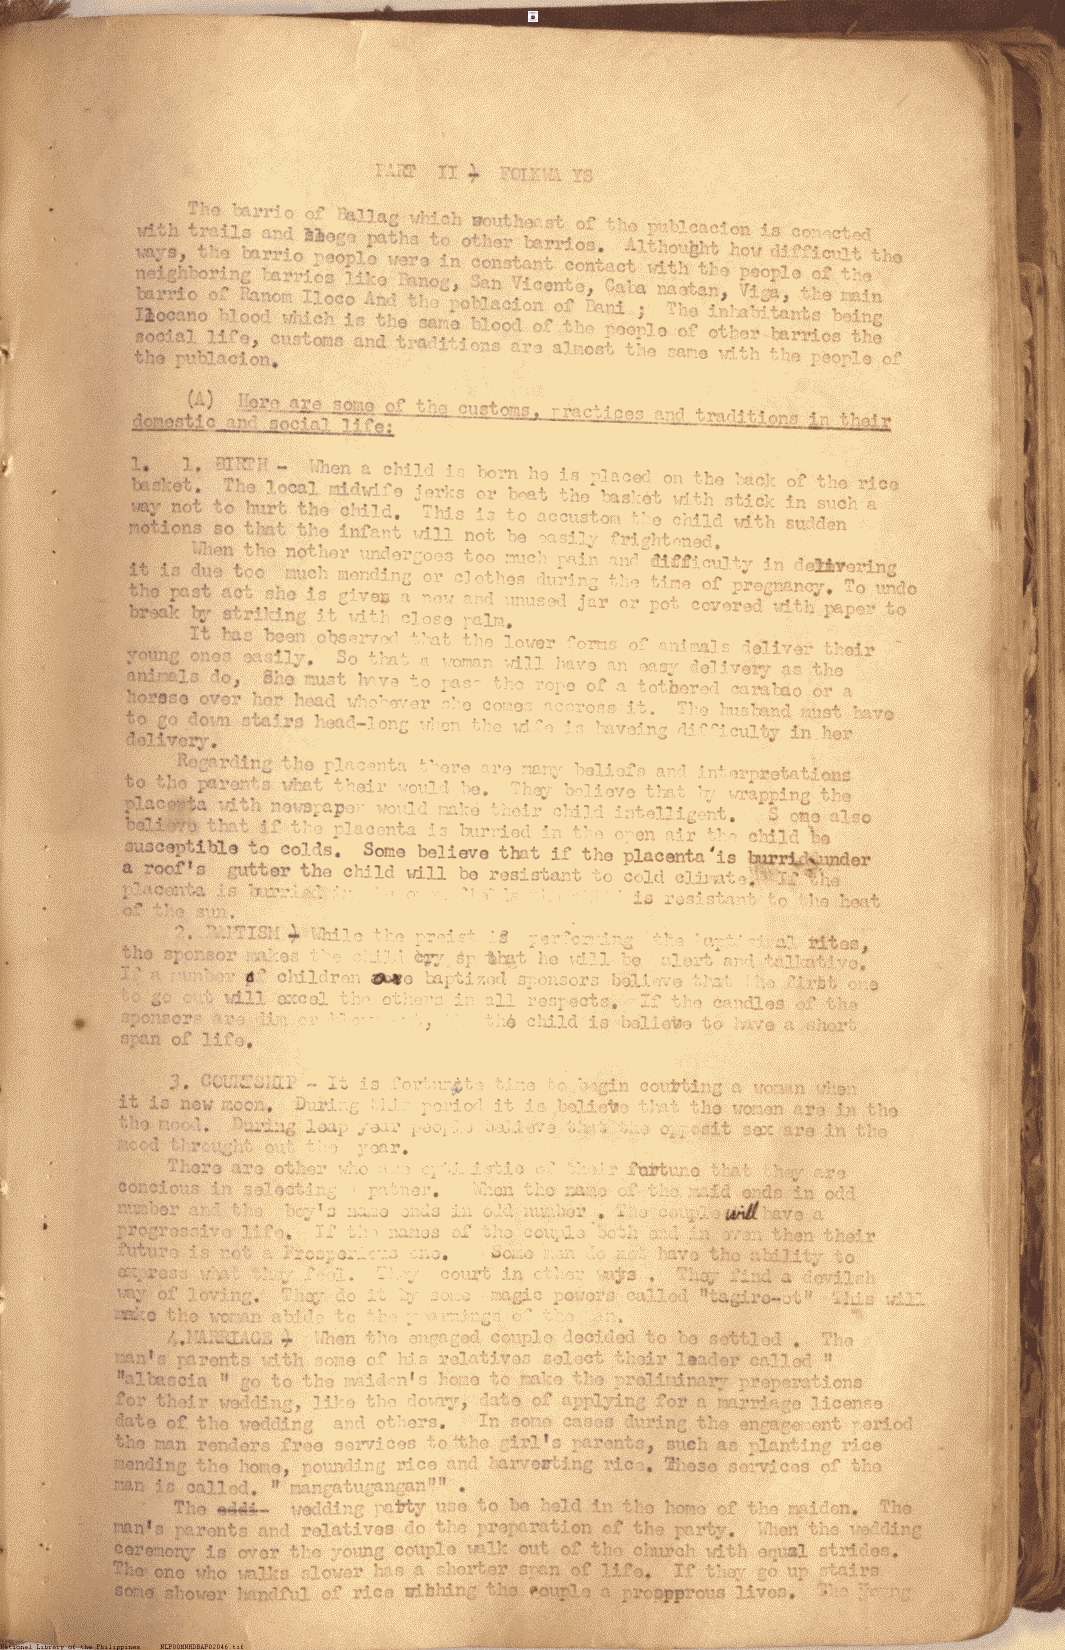 PART II FOLKWA YS
The barrio of Ballag which southeast of the publcacion is conected
with trails and paths to other barrios. Althought how difficult the
ways, the barrio people were in constant contact with the people of the
neighboring barrios like Banog, San Vicente, Caba naetan, Viga, the main
barrio of Ranom Iloco And the poblacion of Bani ; The inhabitants being
Ilocano blood which is the same blood of the people of other barrios the
social life, customs and traditions are almost the same with the people of
the publacion.
(A) Here are some of the customs, practices and traditions in their
domestic and social life:
1. 1. BIRTH - When a child is born he is placed on the back of the rice
basket. The local midwife jerks or beat the basket with stick in such a
way not to hurt the child. This is to accustom the child with sudden
motions so that the infant will not be easily frightened.
When the nother undergoes too much pain and difficulty in delivering
it is due too much mending or clothes during the time of pregnancy. To undo
the past act she is given a new and unused jar or pot covered with paper to
break by striking it with close palm.
It has been observed that the lower forms of animals deliver their
young ones easily. So that a woman will have an easy delivery as the
animals do, She must have to pass the rope of a tethered carabao or a
horsse over her head whehever she comes accross it. The husband must have
to go down stairs head-long when the wife is haveing difficulty in her
delivery.
Regarding the placenta there are many beliefs and interpretations
to the parents what their would be. They believe that by wrapping the
placenta with newspaper would make their child intelligent. S ome also
believe that if the placenta is burried in the open air the child be
susceptible to colds. Some believe that if the placenta is burrid under
a roof's gutter the child will be resistant to cold climate. If the
placenta is burried is resistant to the heat
of the sun.
2. BAPTISM While the preist is performing the baptismal rites,
the sponsor makes the child cry sp that he will be alert and talkative.
If a number of children are baptized sponsors believe that the first one
to go out will excel the others in all respects. If the candles of the
sponsors are dim or the child is believe to have a short
span of life.
3. COURTSHIP - It is fortunate time to begin courting a woman when
it is new moon. During this period it is believe that the women are in the
the mood. During leap year people believe that the opposit sex are in the
mood throught out the year.
There are other who are optimistic of their furtune that they are
concious in selecting a patner. When the name of the maid ends in odd
number and the boy's name ends in odd number . The couple will have a
progressive life. If the names of the couple both end in even then their
future is not a Prosperious one. Some men do not have the ability to
express what they feel. They court in other ways . They find a devilsh
way of loving. They do it by some magic powers called "tagiro-ot" This will
make the woman abide to the of the man.
4.MARRIAGE When the engaged couple decided to be settled . The
man's parents with some of his relatives select their leader called "
"albascia " go to the maiden's home to make the preliminary preperations
for their wedding, like the dowry, date of applying for a marriage license
date of the wedding and others. In some cases during the engagement period
the man renders free services to the girl's parents, such as planting rice
mending the home, pounding rice and harvesting rice. These services of the
man is called. " mangatugangan"" .
The addi- wedding patty use to be held in the home of the maiden. The
man's parents and relatives do the preparation of the party. When the wedding
ceremony is over the young couple walk out of the church with equal strides.
The one who walks slower has a shorter span of life. If they go up stairs
some shower handful of rice wibhing the couple a prospprous lives. The Young
National Library of the Philippines NLP00NHHDBAP02046.tif